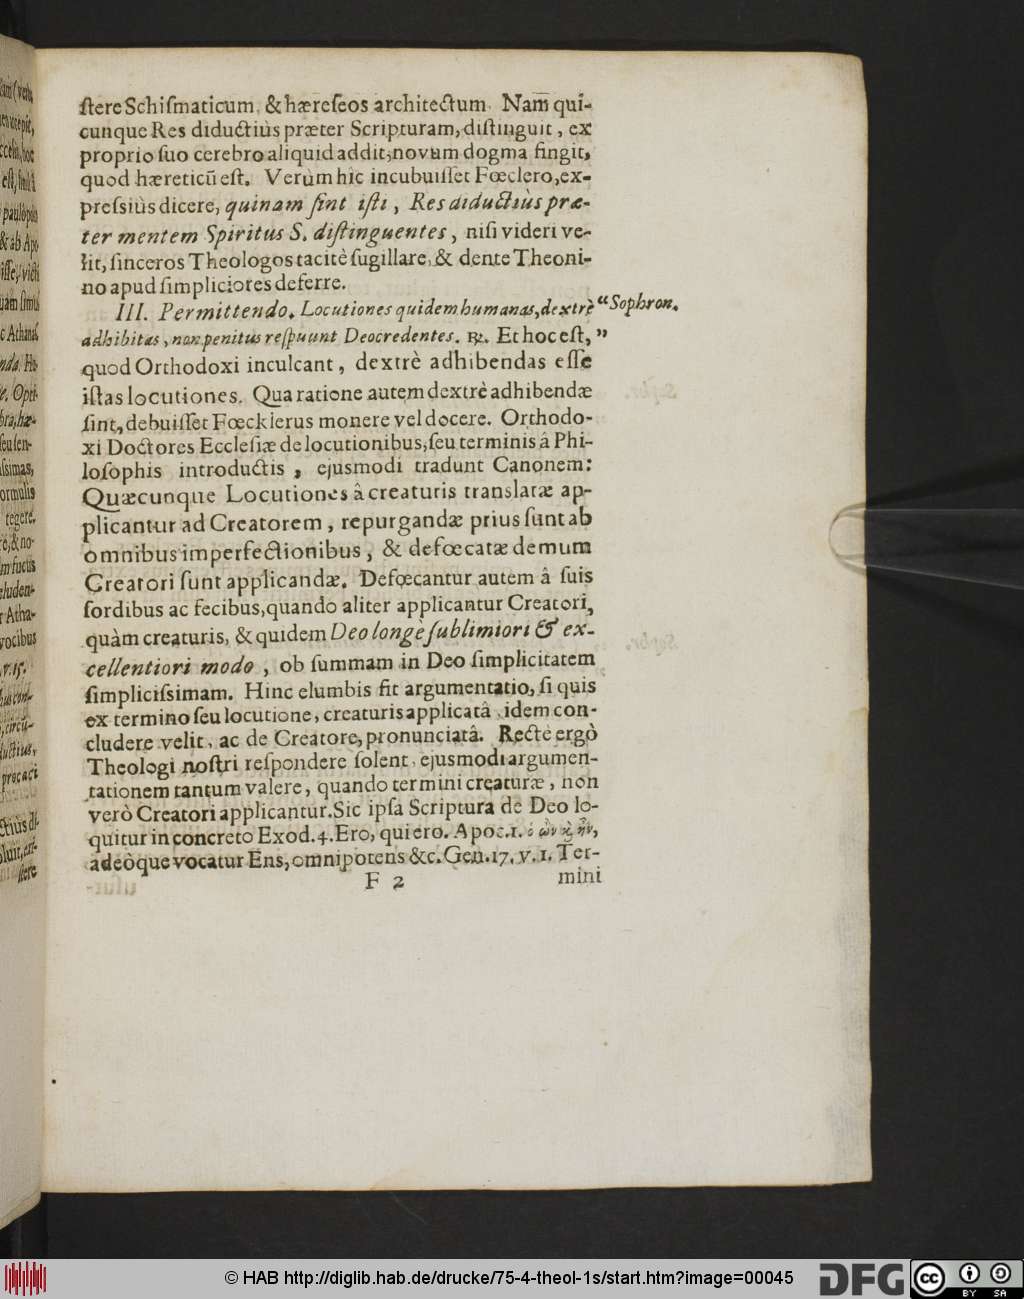 ſtere Schiſmaticum, & hæreſeos architectum. Nam̄ qui-
cunque Res diductiùs præter Scripturam, diſtinguit, ex
proprio ſuo cerebro aliquid addit, novum dogma fingit,
quod hæreticũ eſt. Verùm hic incubuiſſet Fœclero, ex-
preſsiùs dicere, quinam ſint iſti, Res diductiùs præ-
ter mentem Spiritus S. diſtinguentes, niſi videri ve-
lit, ſinceros Theologos tacitè ſugillare, & dente Theoni-
no apud ſimpliciores deferre.
III. Permittendo. Locutiones quidem humanas, dextrè “Sophron.
adhibitas, non penitus reſpuunt Deocredentes. ꝶ. Et hoc eſt, ”
quod Orthodoxi inculcant, dextrè adhibendas eſſe
iſtas locutiones. Qua ratione autem dextrè adhibendæ
ſint, debuiſſet Fœcklerus monere vel docere. Orthodo-
xi Doctores Eccleſiæ de locutionibus, ſeu terminis â Phi-
loſophis introductis, ejusmodi tradunt Canonem:
Quæcunque Locutiones â creaturis translatæ ap-
plicantur ad Creatorem, repurgandæ prius ſunt ab
omnibus imperfectionibus, & defœcatæ demum
Creatori ſunt applicandæ. Defœcantur autem â ſuis
ſordibus ac fecibus, quando aliter applicantur Creatori,
quàm creaturis, & quidem Deo longè ſublimiori & ex-
cellentiori modo, ob ſummam in Deo ſimplicitatem
ſimpliciſsimam. Hinc elumbis fit argumentatio, ſi quis
ex termino ſeu locutione, creaturis applicatâ, idem con-
cludere velit, ac de Creatore, pronunciatâ. Rectè ergò
Theologi noſtri reſpondere ſolent, ejusmodi argumen-
tationem tantum valere, quando termini creaturæ, non
verò Creatori applicantur. Sic ipſa Scriptura de Deo lo-
quitur in concreto Exod. 4. Ero, qui ero. Apoc. 1. ὁ ὢν ϗ̀ ἦν,
adeòque vocatur Ens, omnipotens &c. Gen. 17. v. 1. Ter-
F 2 mini
© HAB http://diglib.hab.de/drucke/75-4-theol-1s/start.htm?image=00045
DFG
cc BY SA